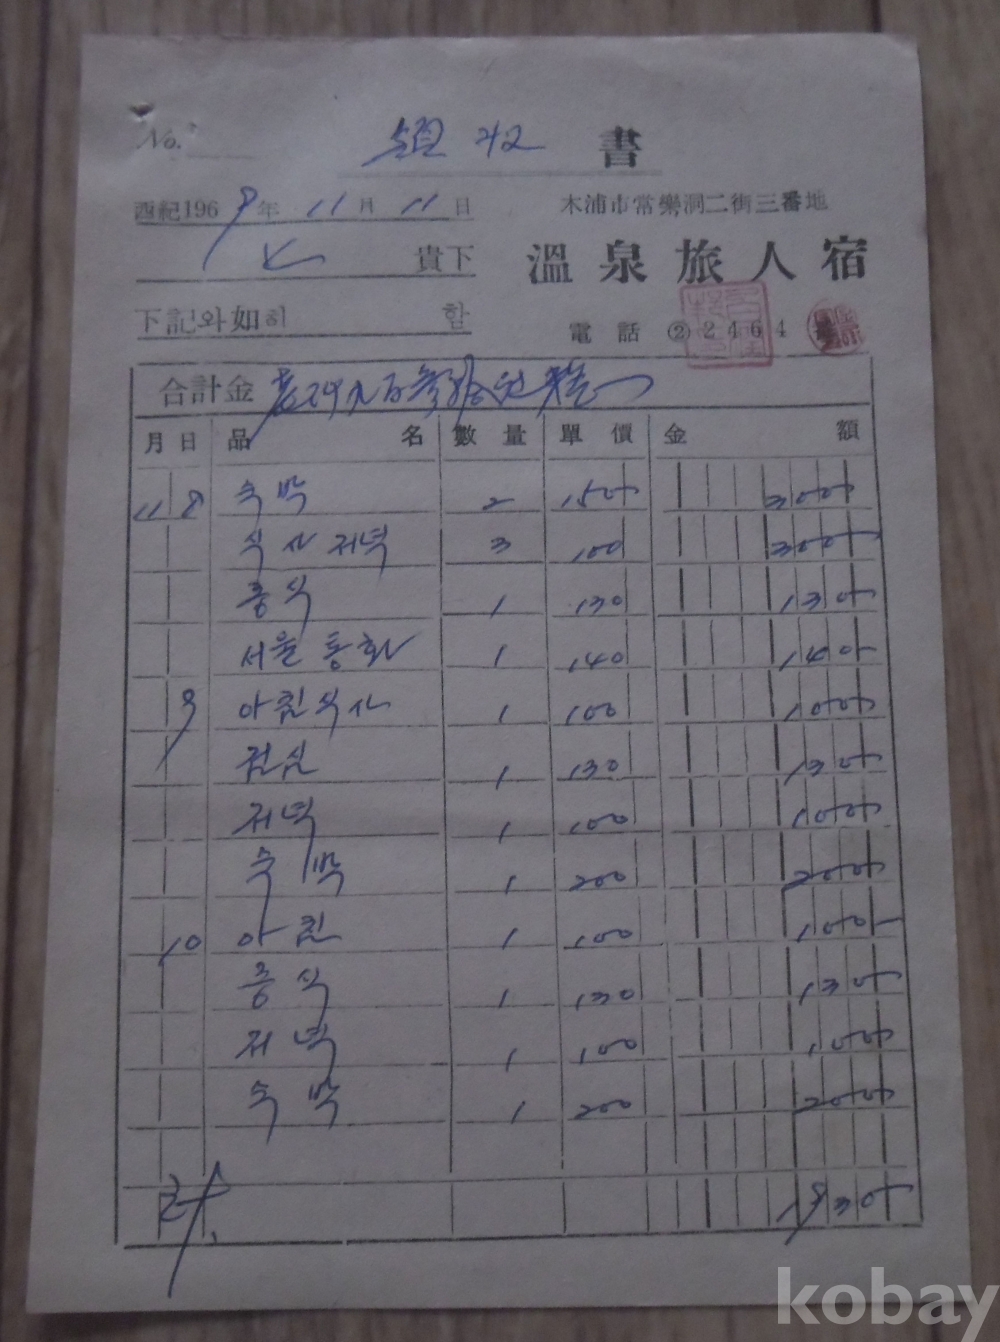 No.
領收 書
西紀1969年 11月 11日
木浦市常樂洞二街三番地
貴下
溫泉旅人宿
下記와如히 함
電話 ② 2464
合計金 壹仟九百參拾원整
月 日 品 名 數 量 單 價 金 額
11 8 숙박 2 150 300
식사 저녁 3 100 300
중식 1 130 130
서울 통화 1 140 140
9 아침식사 1 100 100
점심 1 130 130
저녁 1 100 100
숙박 1 200 200
10 아침 1 100 100
중식 1 130 130
저녁 1 100 100
숙박 1 200 200
計 1930
kobay